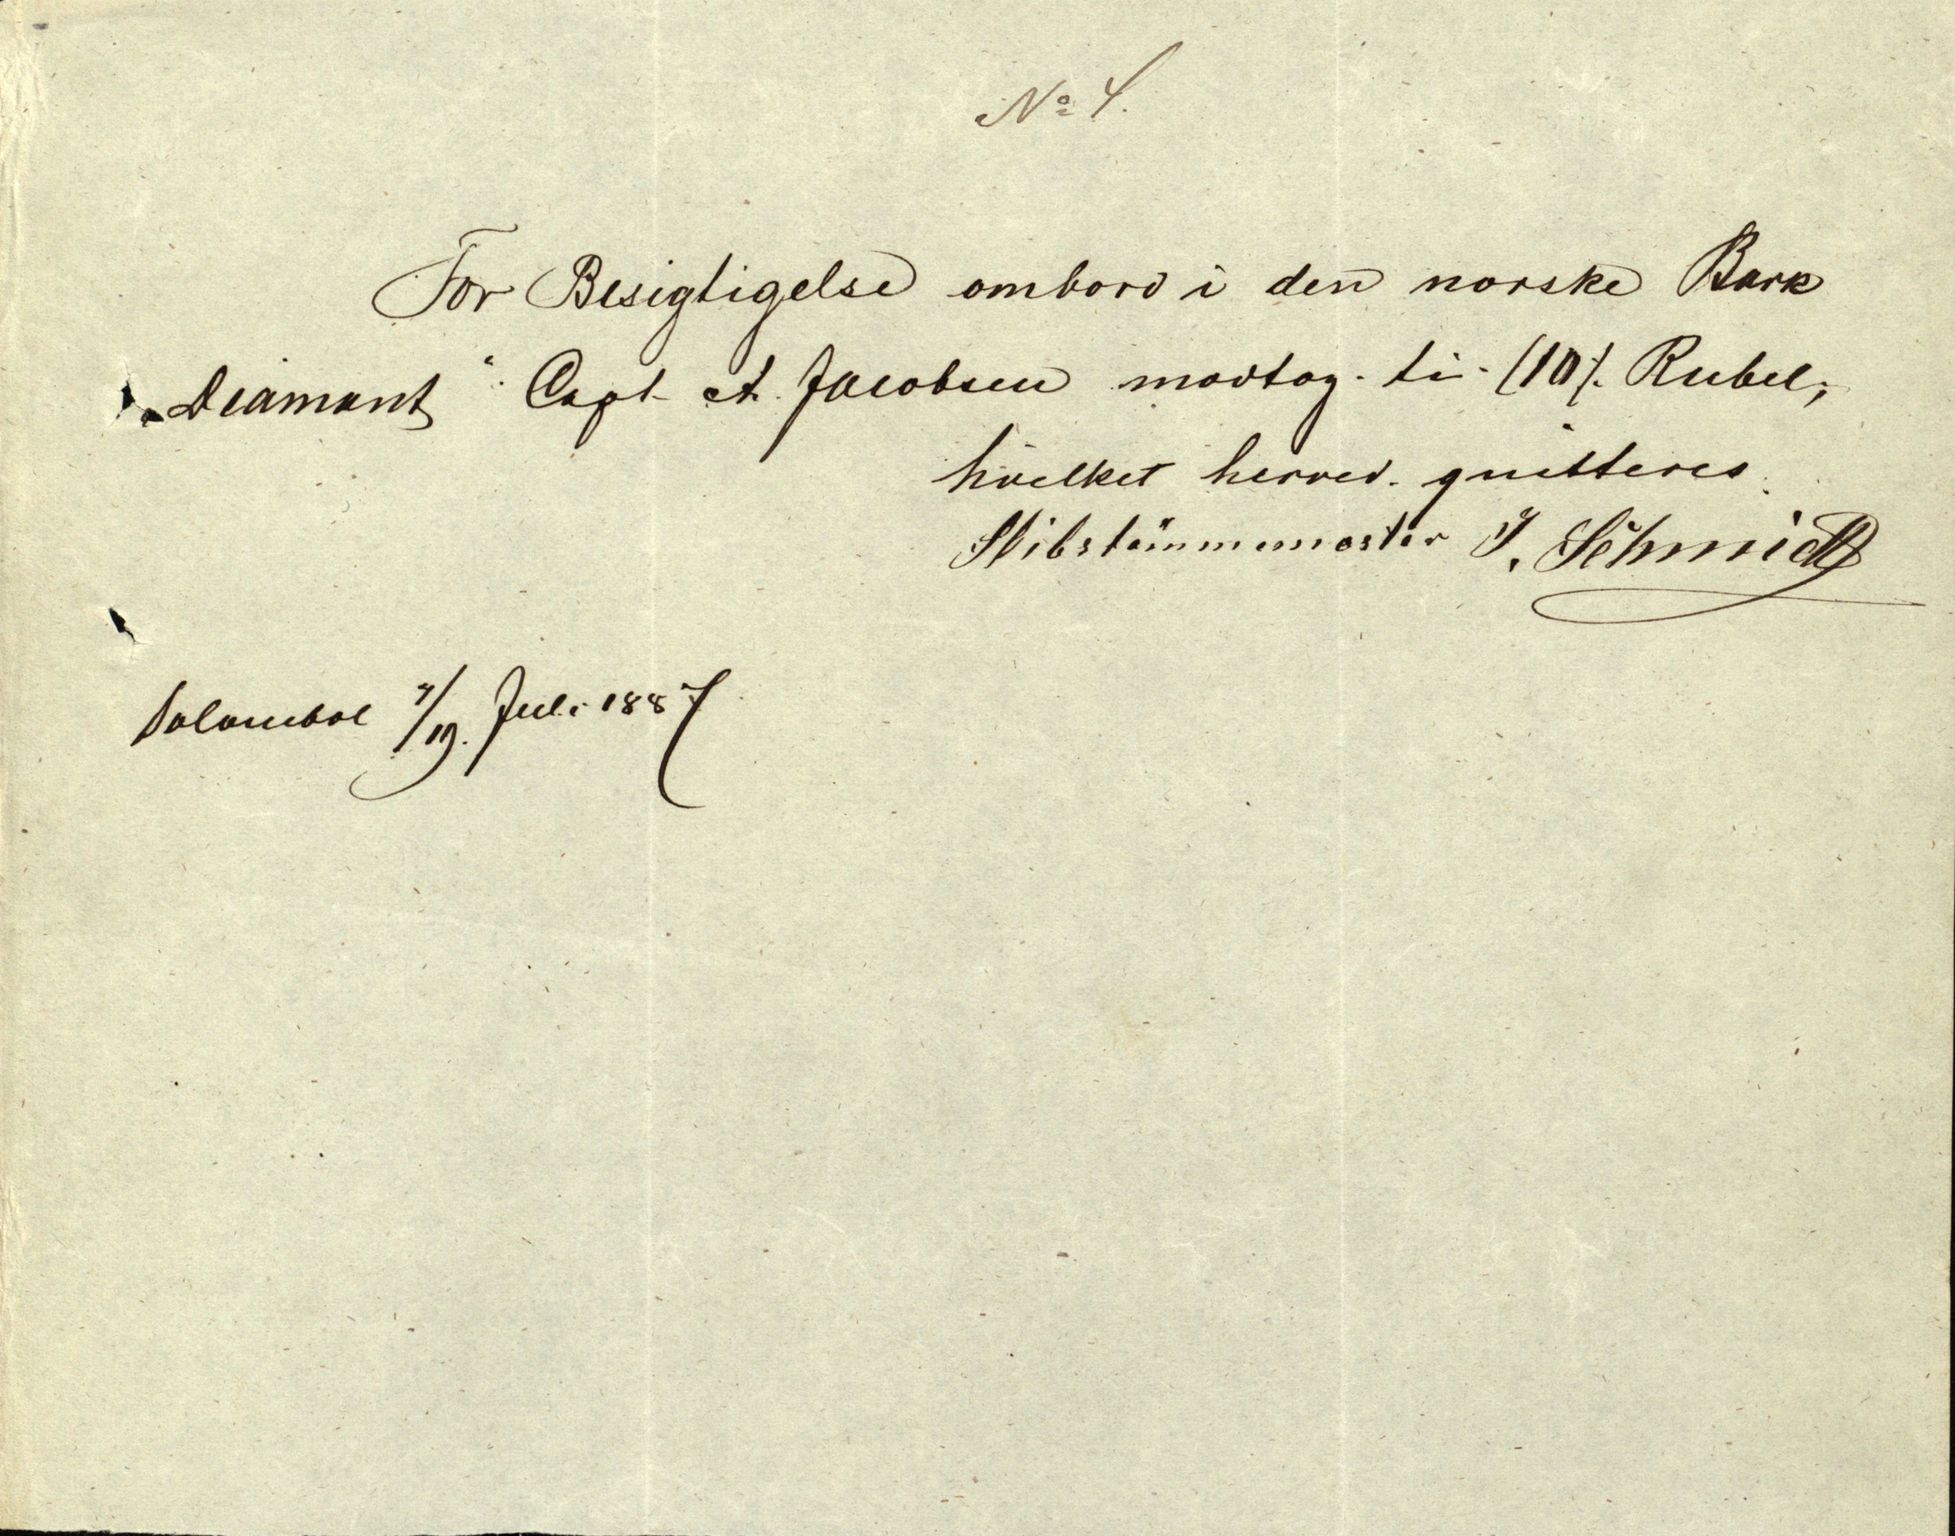 No 4.
For Besigtigelse ombord i den norske Bark
„Diamant“ Capt A. Jacobsen modtog. ti. (10). Rubel,
hvilket herved. quitteres.
Skibstømmemester J. Schmidt
Solombol 7/19. Juli 1887